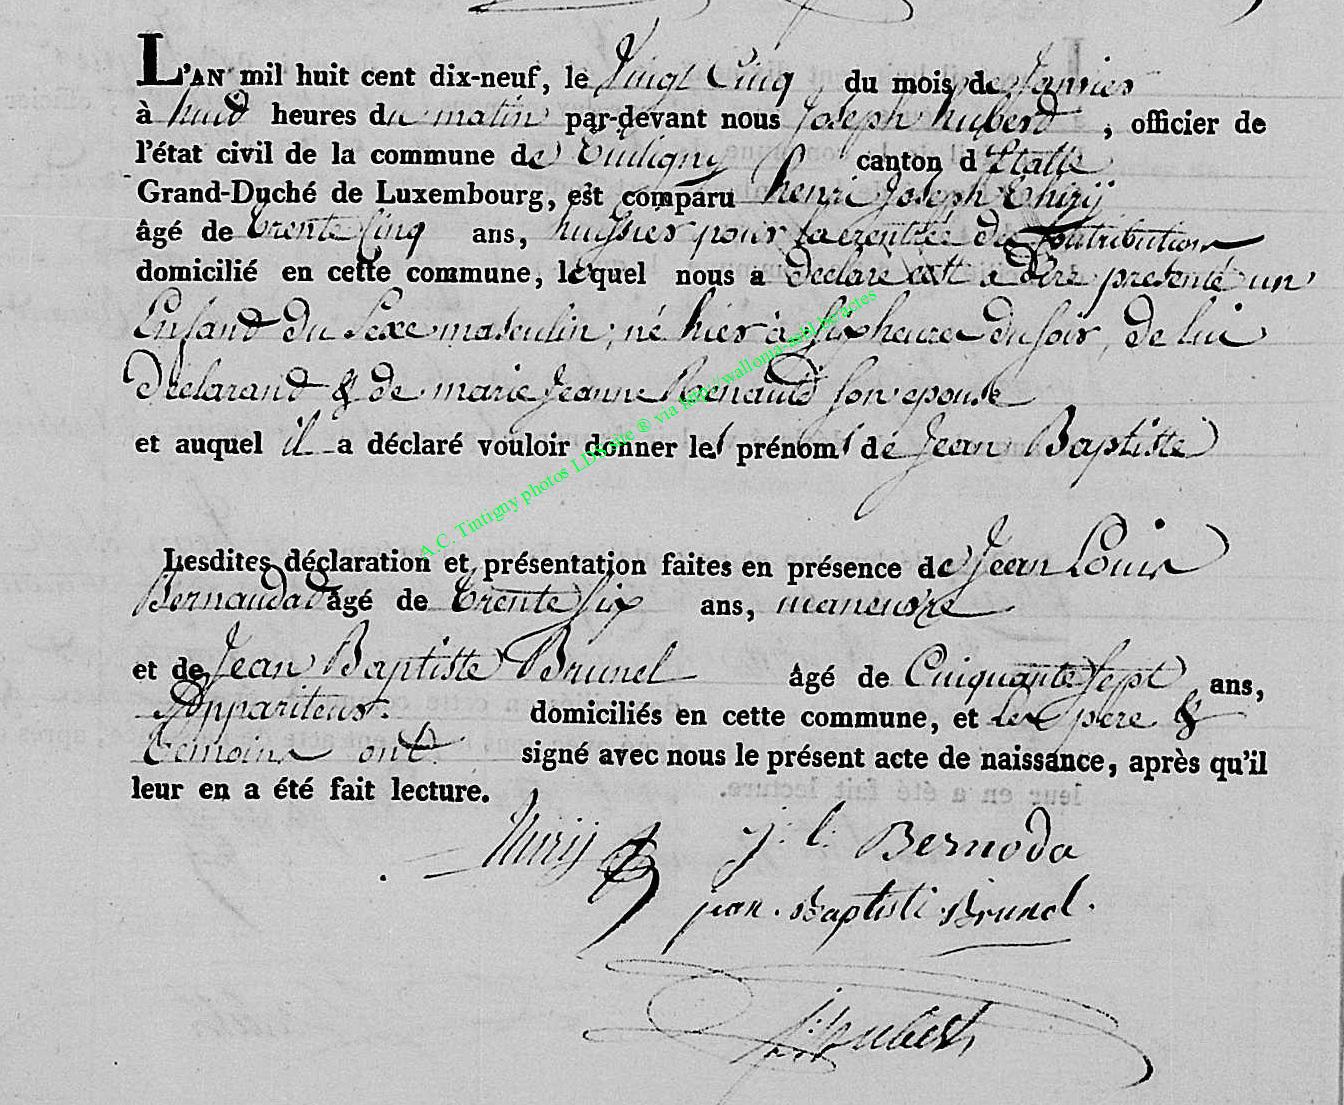 L'AN mil huit cent dix-neuf, le Vingt Cinq du mois de Janvier
à huid heures du matin par-devant nous Joseph huberd, officier de
l'état civil de la commune de Tintigny canton d'Etalle
Grand-Duché de Luxembourg, est comparu henri Joseph Thirij
âgé de trente Cinq ans, huissier pour la rentrée des Contribution
domicilié en cette commune, lequel nous a declaré cest a dire presenté un
Enfand du Sexe masculin, né hier à Six heures du soir, de lui
Declarand & de marie Jeanne Renauld son epouse
et auquel il a déclaré vouloir donner les prénoms de Jean Baptiste
A.C. Tintigny photos LDS site ® via http://wallonia-asbl.be/actes
Lesdites déclaration et présentation faites en présence de Jean Louis
Bernaudad âgé de trente Six ans, manenvre
et de Jean Baptiste Brunel âgé de Cinquante Sept ans,
Appariteur. domiciliés en cette commune, et les père &
temoins ont signé avec nous le présent acte de naissance, après qu'il
leur en a été fait lecture.
Thirij
j: l: Bernoda
jean. Baptisti Brunel.
J: hubert